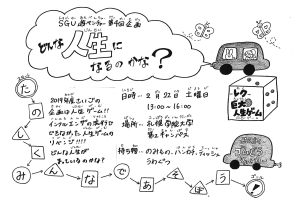 SGU 夢ベンチャー 第4回企画
どんな人生に
なるのかな?
2019年度さいごの
企画は人生ゲーム!!
インフルエンザの流行で
できなかった人生ゲームの
リベンジ!!!!
どんな人生が
まっているのかな?
日時…2月22日 土曜日
13:00〜16:00
場所…札幌学院大学
第2キャンパス
持ち物…のみもの、ハンカチ、ティッシュ
うわぐつ
レク…
巨大
人生ゲーム
たのしくみんなであそぼう